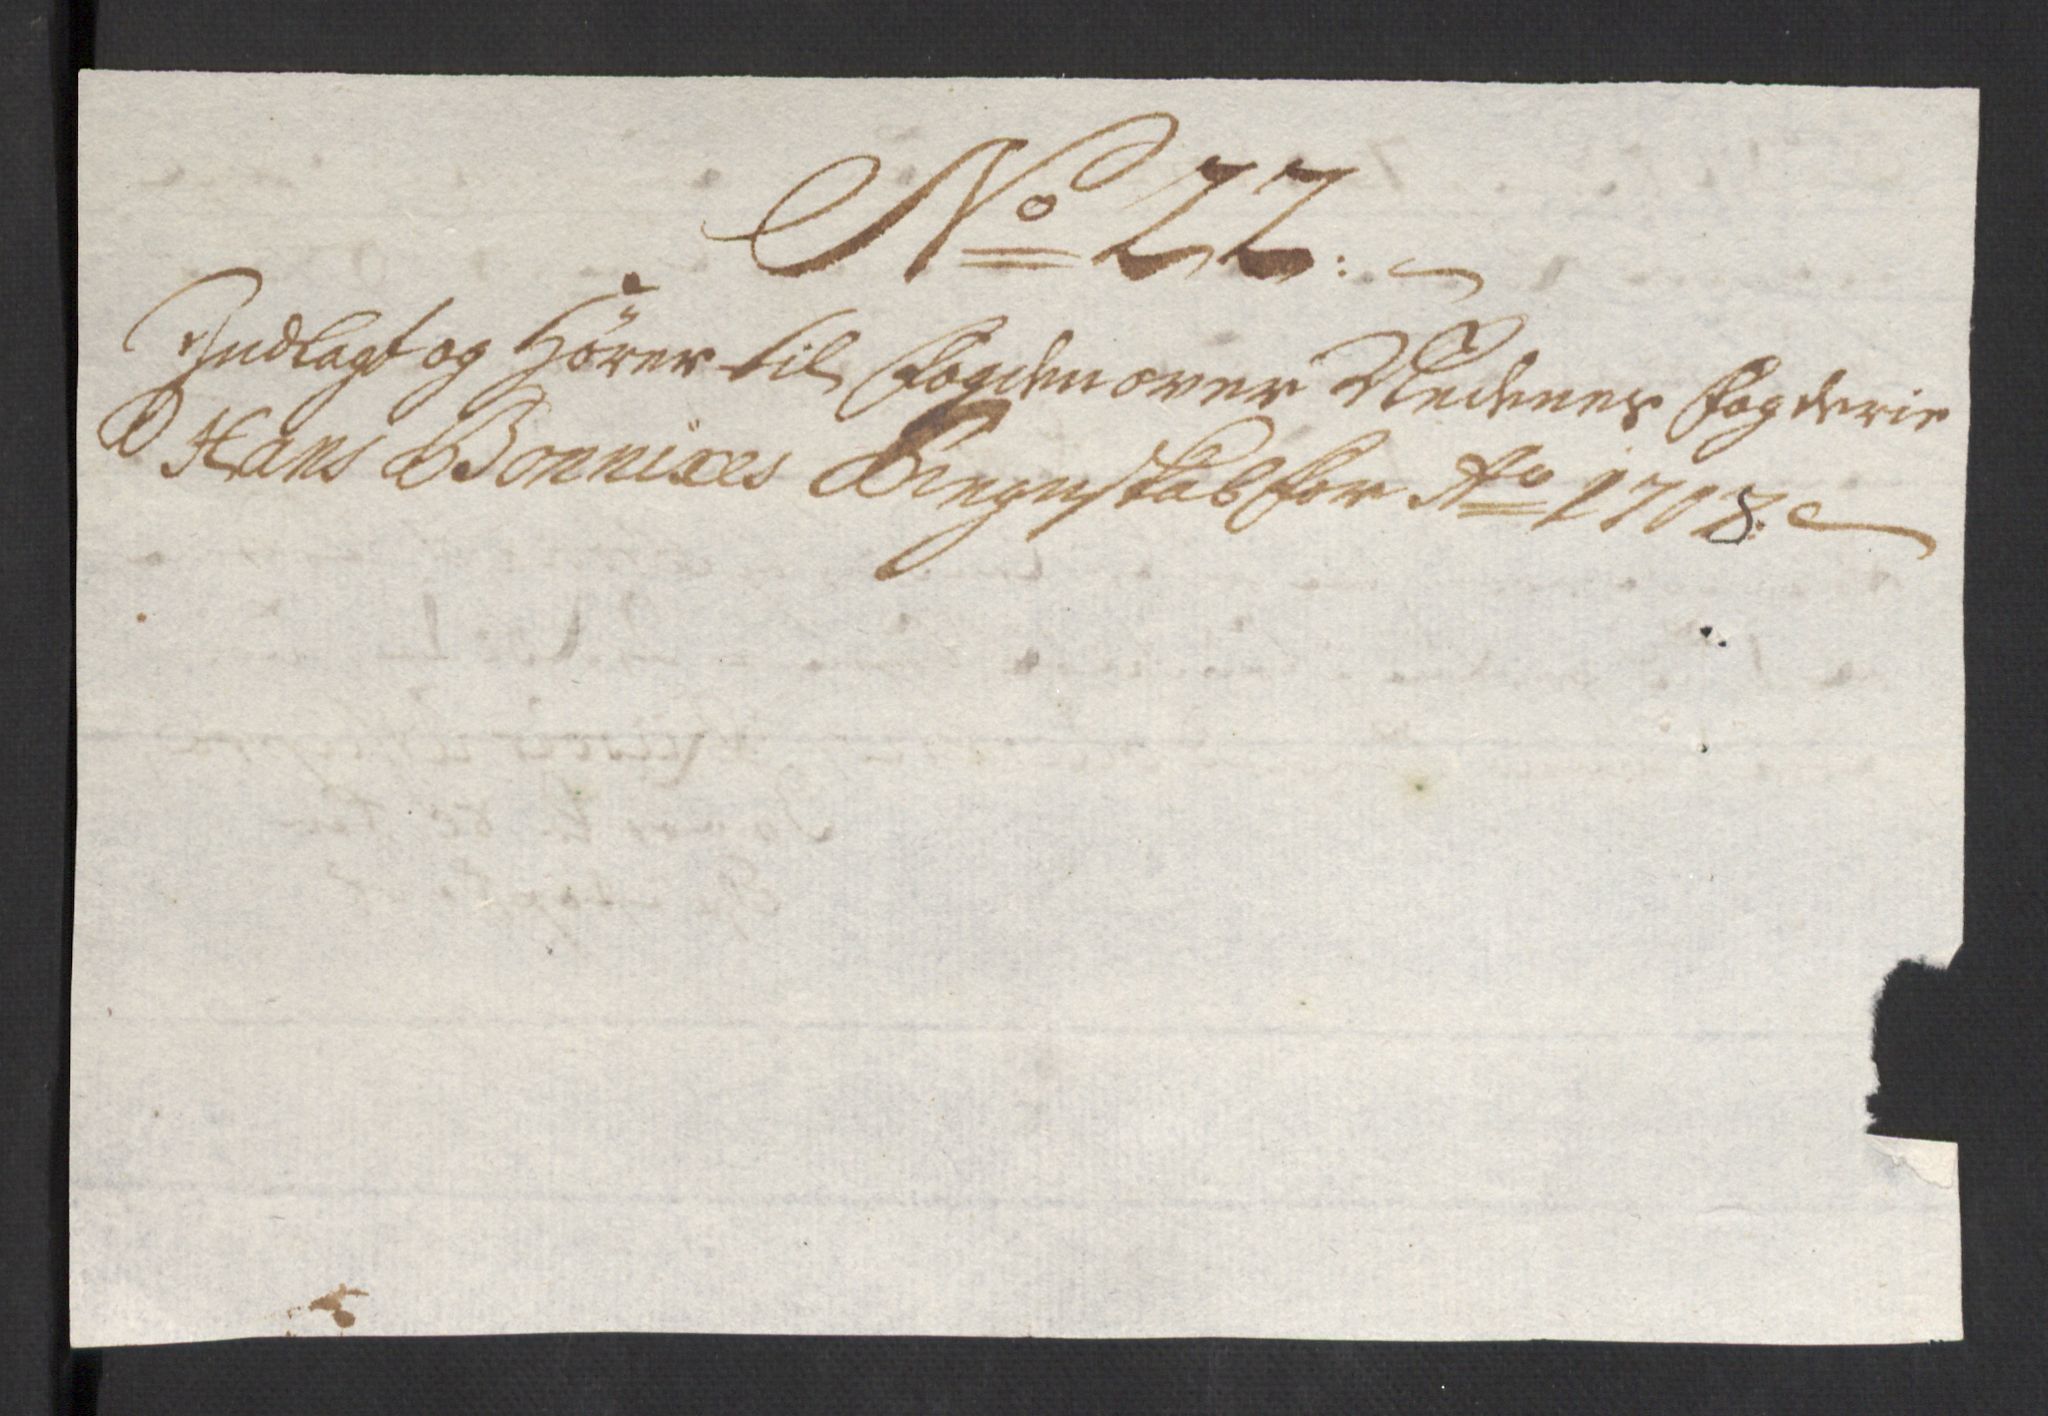 No 22:
Indlagt og Hörer til Fogden over Nedenes Fogderie
Hans Bonnixes Regnskab for Ao 1708: